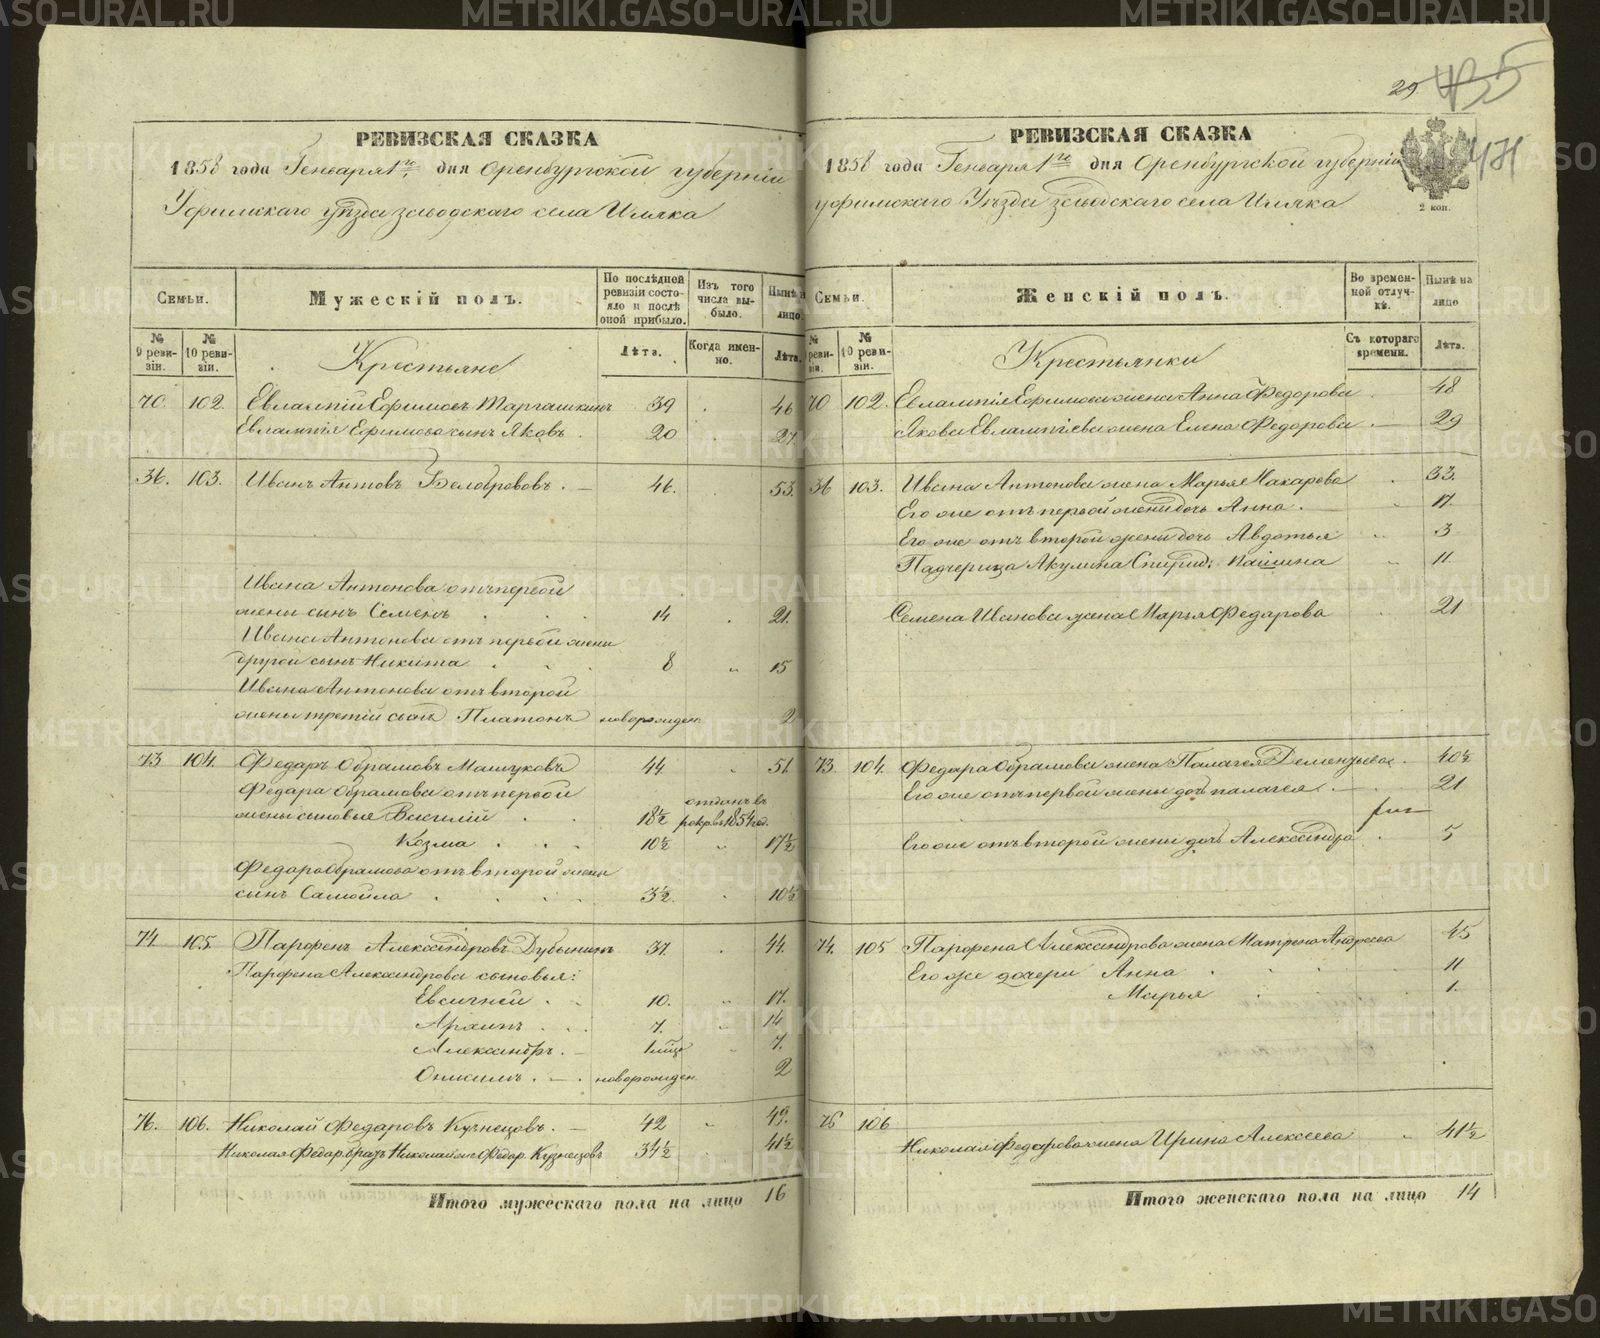 29 435
РЕВИЗСКАЯ СКАЗКА
1858 года Генваря 1го дня Оренбургской губернии
Уфимскаго уѣзда заводскаго села Илека
Семьи.
Мужескій полъ.
По послѣдней ревизіи состояло и послѣ оной прибыло.
Изъ того числа выбыло.
Нынѣ на лицо.
№ 9 ревизіи.
№ 10 ревизіи.
Крестьяне
Лѣта.
Когда именно.
Лѣта.
70. 102. Евлампій Ефимовъ Таргашкинъ 39 46
Евлампія Ефимова сынъ Яковъ. 20 27
36. 103. Иванъ Антовъ Белобрововъ. 46. 53.
Ивана Антонова отъ первой
жены сынъ Семенъ 14 21.
Ивана Антонова отъ первой жены
другой сынъ Никита 8 „ 15
Ивана Антонова отъ второй
жены третій сынъ Платонъ новорожден. 2
73 104. Федаръ Обрамовъ Машуковъ 44 „ 51.
Федара Обрамова отъ первой
жены сыновья Василій 18½ отданъ въ рекр. въ 1854 год.
Козма 10½ „ 17½
Федара Обрамова отъ второй жены
сынъ Самойла 3½. 10½
74. 105. Парфенъ Александровъ Дубынинъ 37. 44.
Парфена Александрова сыновья:
Евсигней 10. „ 17.
Архипъ 7. 14
Александръ. 7.
Онисимъ. новорожден. 2
76. 106. Николай Федаровъ Кузнецовъ. 42 „ 49.
Николая Федар. братъ Николай же Федар. Кузнецовъ 34½ 41½
Итого мужескаго пола на лицо 16
РЕВИЗСКАЯ СКАЗКА
1858 года Генваря 1го дня Оренбургской губерніи
2 коп.
471
уфимскаго Уѣзда заводскаго села Илека
Семьи.
Женскій полъ.
Во временной отлучкѣ.
Нынѣ на лицо
№ ревизіи.
№ 10 ревизіи.
Крестьянки
Съ котораго времени.
Лѣта.
70 102. Евлампія Ефимова жена Анна Федорова 48
Якова Евлампіева жена Елена Федорова 29
36 103. Ивана Антонова жена Марья Макарова 33.
Его же отъ первой жены дочь Анна. 17.
Его же отъ второй жены дочь Авдотья 3
Падчерица Акулина Спирид: 11
Семена Иванова жена Марья Федарова 21
73. 104. Федара Обрамова жена Палагея Дементьева. 40½
Его же отъ первой жены дочь палагея 21
Его же отъ второй жены дочь Александра 5
74. 105 Парфена Александрова жена Матрена Андреева 45
Его же дочери Анна 11
Марья 1.
76 106
Николая Федарова жена Ирина Алексеева „ 41½
Итого женскаго пола на лицо 14
METRIKI.GASO-URAL.RU